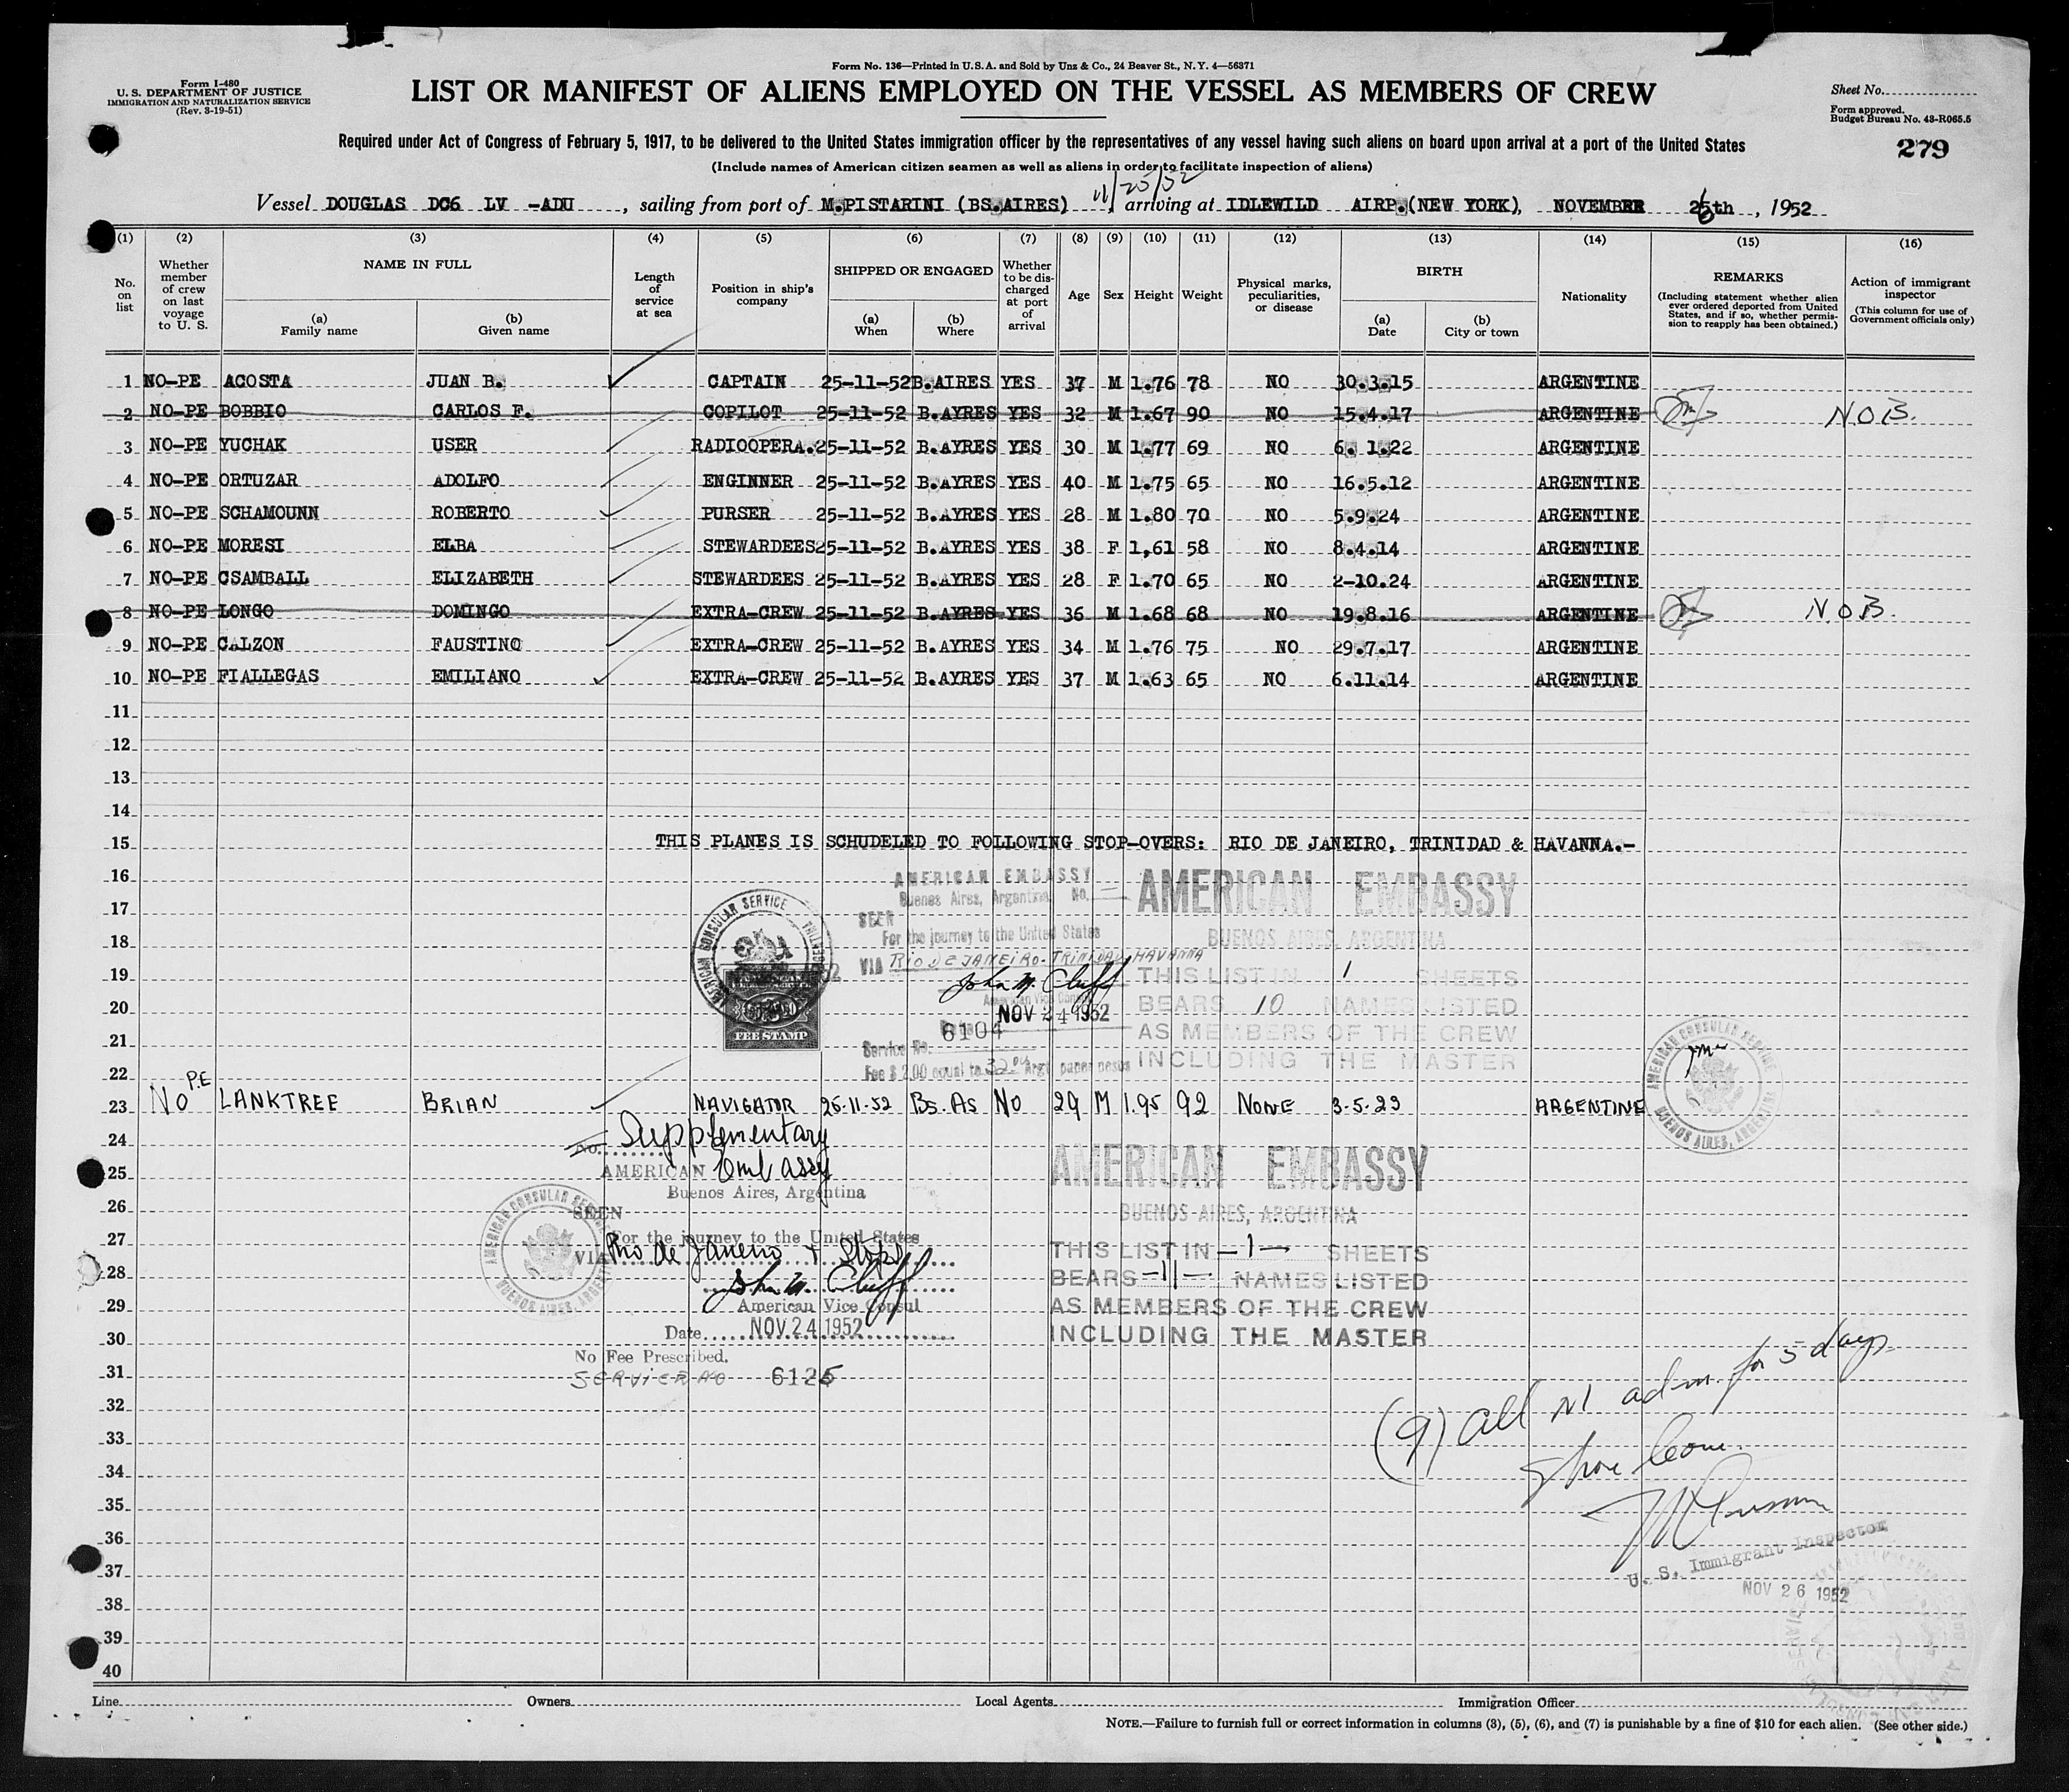 Form No. 136—Printed in U.S.A. and Sold by Unz & Co., 24 Beaver St., N. Y. 4—56371
Form I-480
U. S. DEPARTMENT OF JUSTICE
IMMIGRATION AND NATURALIZATION SERVICE
(Rev. 3-19-51)
LIST OR MANIFEST OF ALIENS EMPLOYED ON THE VESSEL AS MEMBERS OF CREW
Sheet No.
Form approved.
Budget Bureau No. 43-R065.5
279
Required under Act of Congress of February 5, 1917, to be delivered to the United States immigration officer by the representatives of any vessel having such aliens on board upon arrival at a port of the United States
(Include names of American citizen seamen as well as aliens in order to facilitate inspection of aliens)
11/25/52
Vessel DOUGLAS DC6 LV -ADU, sailing from port of M.PISTARINI (BS.AIRES), arriving at IDLEWILD AIRP.(NEW YORK), NOVEMBER 26th, 1952
(1) (2) (3) (4) (5) (6) (7) (8) (9) (10) (11) (12) (13) (14) (15) (16)
No. on list
Whether member of crew on last voyage to U. S.
NAME IN FULL
(a) Family name
(b) Given name
Length of service at sea
Position in ship's company
SHIPPED OR ENGAGED
(a) When
(b) Where
Whether to be discharged at port of arrival
Age
Sex
Height
Weight
Physical marks, peculiarities, or disease
BIRTH
(a) Date
(b) City or town
Nationality
REMARKS
(Including statement whether alien ever ordered deported from United States, and if so, whether permission to reapply has been obtained.)
Action of immigrant inspector
(This column for use of Government officials only)
1 NO-PE ACOSTA JUAN B. CAPTAIN 25-11-52 B.AIRES YES 37 M 1.76 78 NO 30.3.15 ARGENTINE
2 NO-PE BOBBIO CARLOS F. COPILOT 25-11-52 B.AYRES YES 32 M 1.67 90 NO 15.4.17 ARGENTINE N.O.B.
3 NO-PE YUCHAK USER RADIOOPERA. 25-11-52 B.AYRES YES 30 M 1.77 69 NO 6. 1.22 ARGENTINE
4 NO-PE ORTUZAR ADOLFO ENGINNER 25-11-52 B.AYRES YES 40 M 1.75 65 NO 16.5.12 ARGENTINE
5 NO-PE SCHAMOUNN ROBERTO PURSER 25-11-52 B.AYRES YES 28 M 1.80 70 NO 5.9.24 ARGENTINE
6 NO-PE MORESI ELBA STEWARDEES 25-11-52 B.AYRES YES 38 F 1,61 58 NO 8.4.14 ARGENTINE
7 NO-PE CSAMBALL ELIZABETH STEWARDEES 25-11-52 B.AYRES YES 28 F 1.70 65 NO 2-10.24 ARGENTINE
8 NO-PE LONGO DOMINGO EXTRA-CREW 25-11-52 B.AYRES YES 36 M 1.68 68 NO 19.8.16 ARGENTINE N.O.B.
9 NO-PE CALZON FAUSTINO EXTRA-CREW 25-11-52 B.AYRES YES 34 M 1.76 75 NO 29.7.17 ARGENTINE
10 NO-PE FIALLEGAS EMILIANO EXTRA-CREW 25-11-52 B.AYRES YES 37 M 1.63 65 NO 6.11.14 ARGENTINE
11
12
13
14
15 THIS PLANES IS SCHUDELED TO FOLLOWING STOP-OVERS: RIO DE JANEIRO, TRINIDAD & HAVANNA.-
16
17
18
19
20
21
22
AMERICAN EMBASSY
Buenos Aires, Argentina, No.
SEEN
For the journey to the United States
VIA RIO DE JANEIRO-TRINIDAD HAVANNA
John M. Cluff
American Vice Consul
NOV 24 1952
Service No. 6104
Fee $2.00 equal to 32 Arg. paper pesos
AMERICAN CONSULAR SERVICE
FEE STAMP
AMERICAN EMBASSY
BUENOS AIRES, ARGENTINA
THIS LIST IN 1 SHEETS
BEARS 10 NAMES LISTED
AS MEMBERS OF THE CREW
INCLUDING THE MASTER
AMERICAN CONSULAR SERVICE
BUENOS AIRES, ARGENTINA
23 NO P.E LANKTREE BRIAN NAVIGATOR 25-11-52 BS. AS NO 29 M 1.95 92 NONE 3-5-23 ARGENTINE
24
25
26
27
28
29
30
31
32
33
34
35
36
37
38
39
40
No. Supplementary
AMERICAN Embassy
Buenos Aires, Argentina
SEEN
For the journey to the United States
VIA Rio de Janeiro + Stops
John M. Cluff
American Vice Consul
Date NOV 24 1952
No Fee Prescribed.
SERVICE NO 6125
AMERICAN CONSULAR SERVICE
BUENOS AIRES, ARGENTINA
AMERICAN EMBASSY
BUENOS AIRES, ARGENTINA
THIS LIST IN -1- SHEETS
BEARS -11- NAMES LISTED
AS MEMBERS OF THE CREW
INCLUDING THE MASTER
(9) All adm. for 5 days
shore leave.
U. S. Immigrant Inspector
NOV 26 1952
Line Owners Local Agents Immigration Officer
NOTE.—Failure to furnish full or correct information in columns (3), (5), (6), and (7) is punishable by a fine of $10 for each alien. (See other side.)